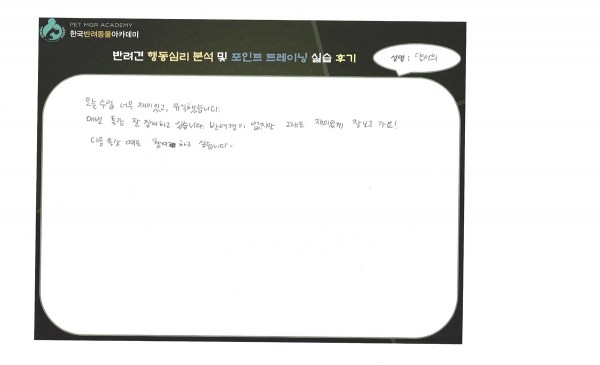 PET MGR ACADEMY
한국반려동물아카데미
반려견 행동심리 분석 및 포인트 트레이닝 실습 후기
성명 :
오늘 수업 너무 재미있고, 유익했습니다.
매번 특강 잘 참여하고 있습니다. 반려견이 없지만 그래도 재미있게 잘 보고 가요!
다음 특강 때도 참여 하고 싶습니다.